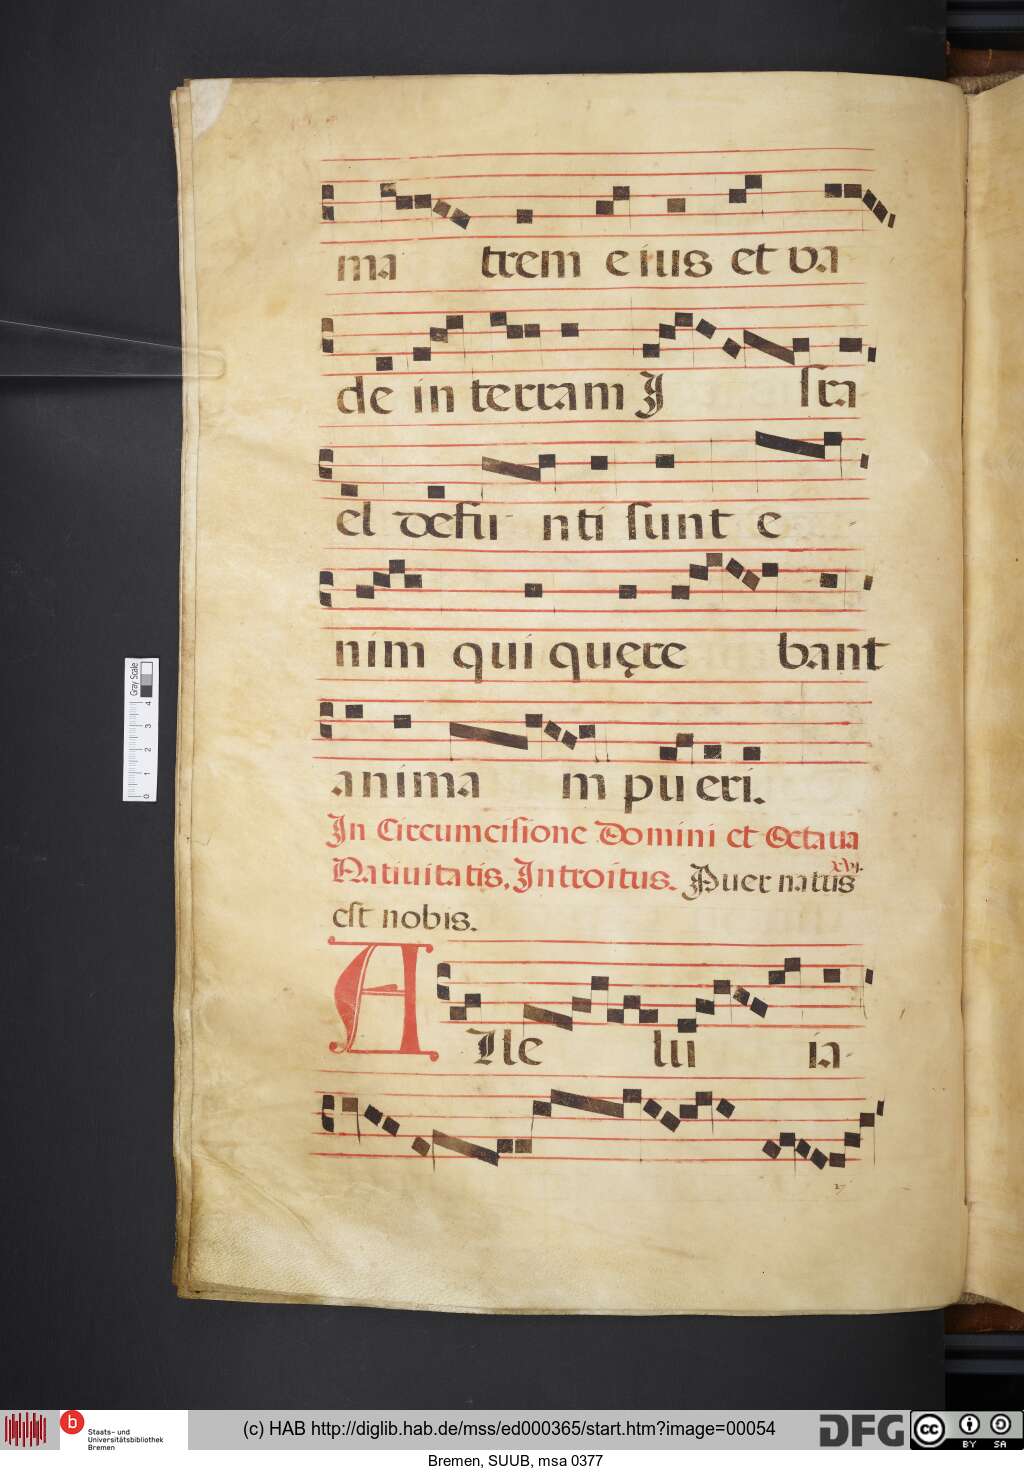 ma trem eius et va
de in terram J sra
el defu nti sunt e
nim qui quęre bant
anima m pu eri.
In Circumcisione Domini et Octaua
xvi.
Natiuitatis. Introitus. Puer natus
est nobis.
Alle lu ia
Gray Scale
0 1 2 3 4
b
Staats- und
Universitätsbibliothek
Bremen
(c) HAB http://diglib.hab.de/mss/ed000365/start.htm?image=00054
DFG
cc
BY SA
Bremen, SUUB, msa 0377